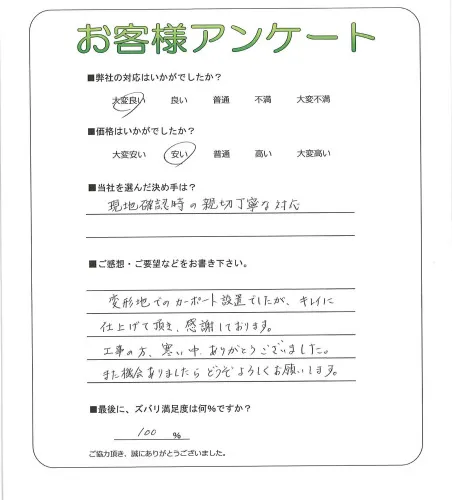 お客様アンケート
■弊社の対応はいかがでしたか？
大変良い 良い 普通 不満 大変不満
■価格はいかがでしたか？
大変安い 安い 普通 高い 大変高い
■当社を選んだ決め手は？
現地確認時の親切丁寧な対応
■ご感想・ご要望などをお書き下さい。
変形地でのカーポート設置でしたが、キレイに
仕上げて頂き、感謝しております。
工事の方、寒い中、ありがとうございました。
また機会ありましたらどうぞよろしくお願いします。
■最後に、ズバリ満足度は何％ですか？
100 ％
ご協力頂き、誠にありがとうございました。